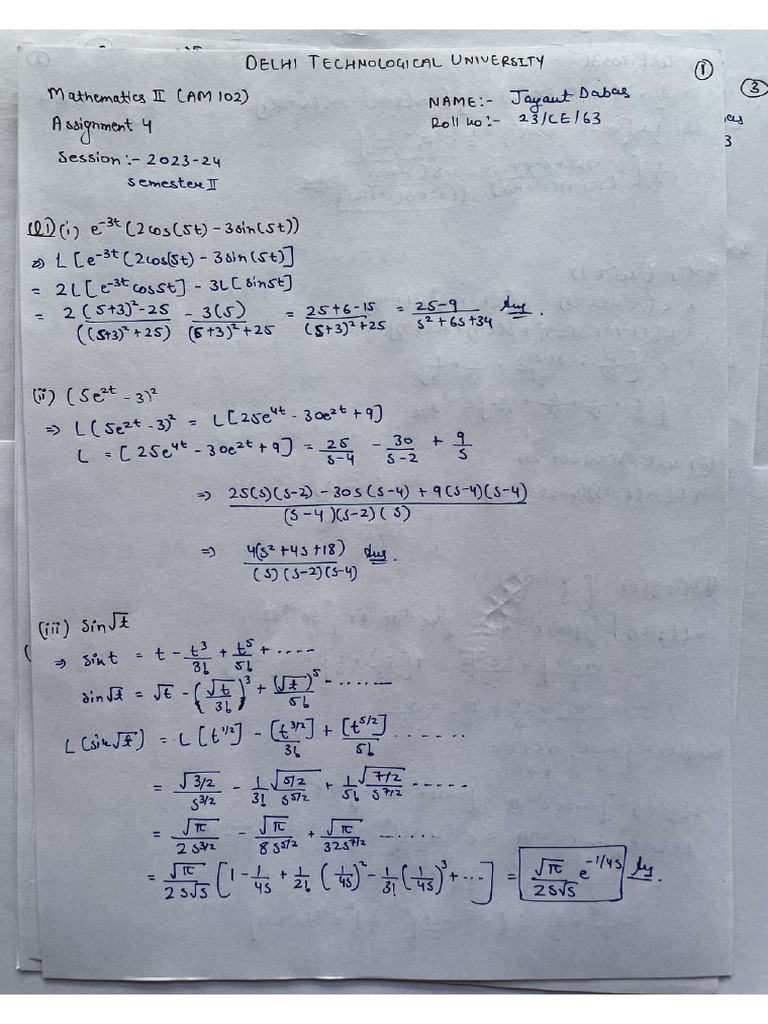 DELHI TECHNOLOGICAL UNIVERSITY
1
3
Mathematics II (AM 102)
NAME:- Jayant Dabas
Assignment 4
Roll no:- 23/CE/63
3
Session:- 2023-24
Semester II
Q1) (i) e^-3t (2cos(5t) - 3sin(5t))
⇒ L[e^-3t (2cos(5t) - 3sin(5t)]
= 2L[e^-3t cos5t] - 3L[sin5t]
= 2(s+3)²-25 / ((s+3)²+25) - 3(5) / (s+3)²+25 = 2s+6-15 / (s+3)²+25 = 2s-9 / s²+6s+34 Ans.
(ii) (5e^2t - 3)²
⇒ L(5e^2t - 3)² = L[25e^4t - 30e^2t + 9]
L = [25e^4t - 30e^2t + 9] = 25/s-4 - 30/s-2 + 9/s
⇒ 25(s)(s-2) - 30s(s-4) + 9(s-4)(s-4) / (s-4)(s-2)(s)
⇒ 4(s²+4s+18) / (s)(s-2)(s-4) Ans.
(iii) sin√t
⇒ sint = t - t³/3! + t⁵/5! + ----
sin√t = √t - (√t/3!)³ + (√t)⁵/5! - .......
L(sin√t) = L[t^1/2] - [t^3/2]/3! + [t^5/2]/5! ......
= √3/2 / s^3/2 - 1/3! √5/2 / s^5/2 + 1/5! √7/2 / s^7/2 .....
= √π / 2s^3/2 - √π / 8s^5/2 + √π / 32s^7/2 .....
= √π / 2s√s [1 - 1/4s + 1/2! (1/4s)² - 1/3! (1/4s)³ + ...] = √π / 2s√s e^-1/4s Ans.